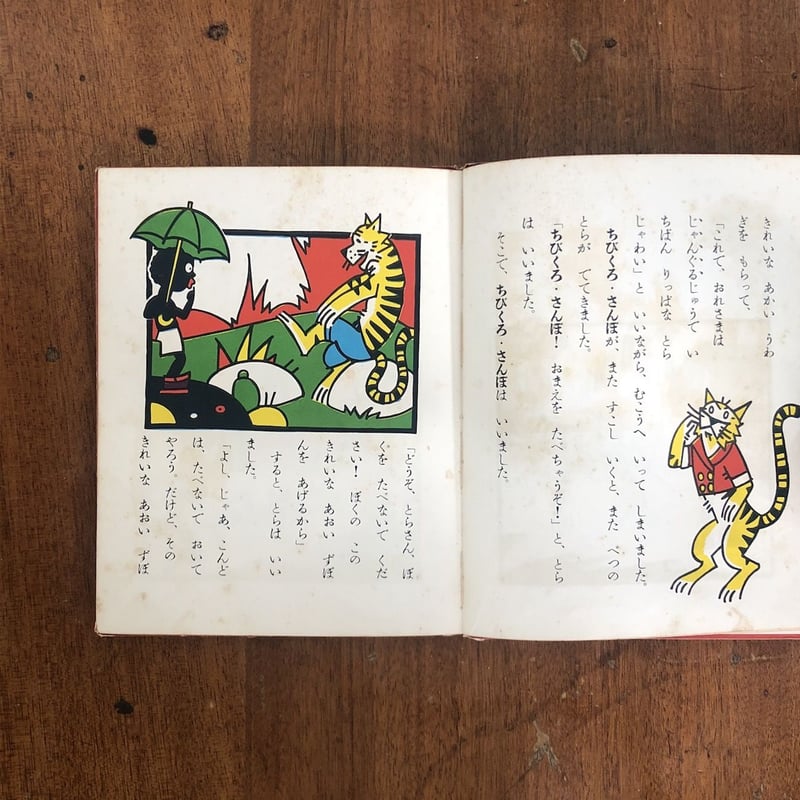 きれいな あかい うわ
ぎを もらって、
「これで、おれさまは
じゃんぐるじゅうで い
ちばん りっぱな とら
じゃわい」と いいながら、むこうへ いって しまいました。
ちびくろ・さんぼが、また すこし いくと、また べつの
とらが でてきました。
「ちびくろ・さんぼ! おまえを たべちゃうぞ!」と、とら
は いいました。
そこで、ちびくろ・さんぼは いいました。
「どうぞ、とらさん、ぼ
くを たべないで くだ
さい! ぼくの この
きれいな あおい ずぼ
んを あげるから」
すると、とらは いい
ました。
「よし、じゃあ、こんど
は、たべないで おいて
やろう。だけど、その
きれいな あおい ずぼ